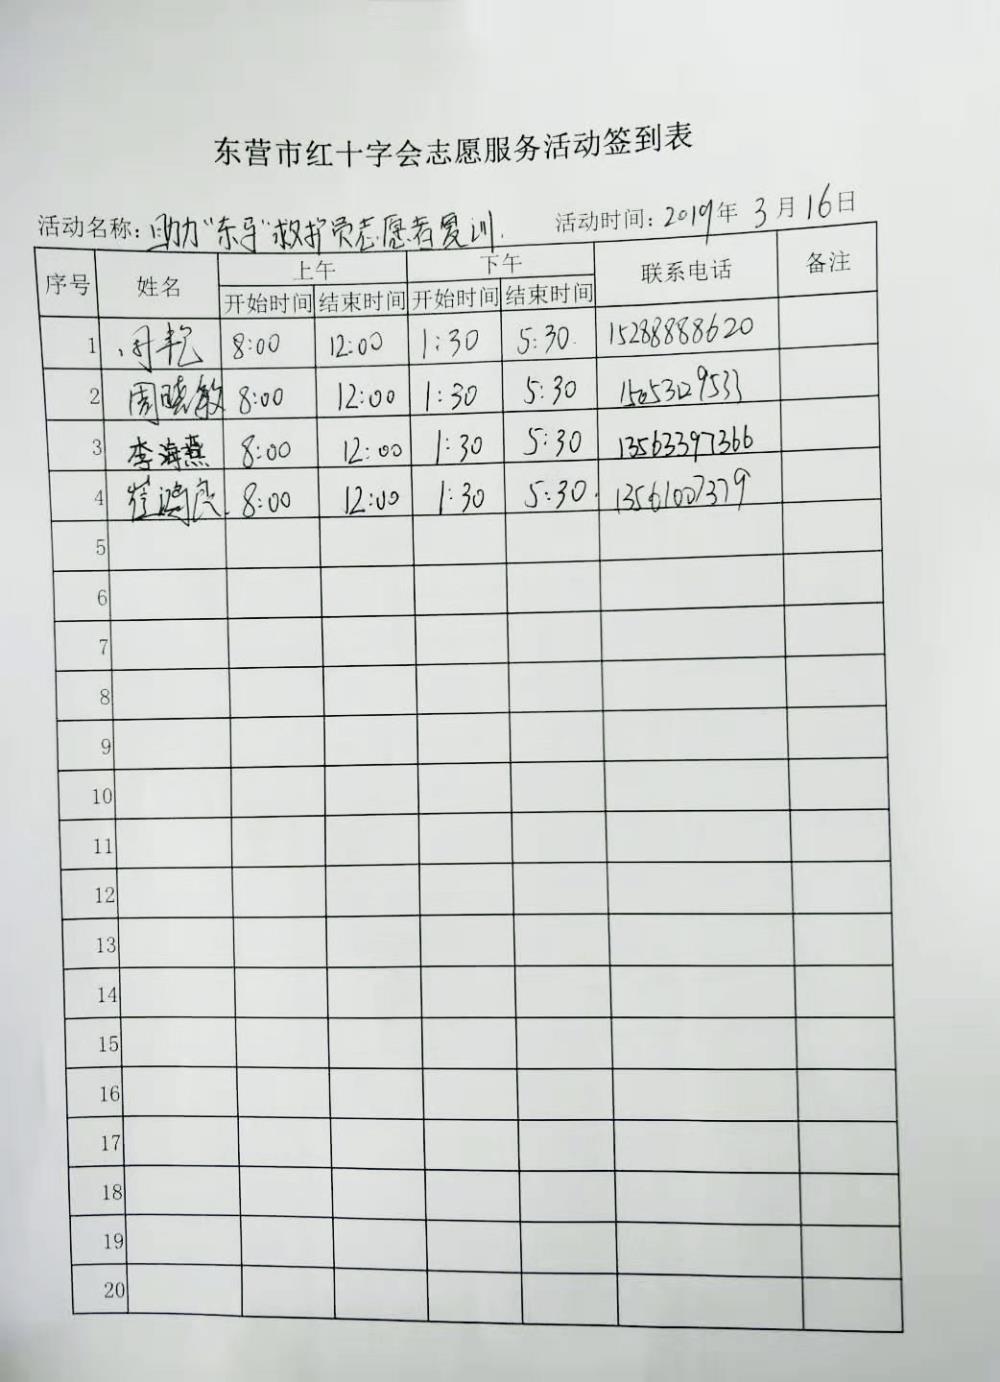 东营市红十字会志愿服务活动签到表
活动名称: 助力"东马"救护员志愿者复训. 活动时间: 2019年 3月16日
序号 姓名 上午 下午 联系电话 备注
开始时间 结束时间 开始时间 结束时间
1 8:00 12:00 1:30 5:30. 15288888620
2 周晓敏 8:00 12:00 1:30 5:30
3 李海燕 8:00 12:00 1:30 5:30 13563397366
4 崔 8:00 12:00 1:30 5:30. 13561007379
5
6
7
8
9
10
11
12
13
14
15
16
17
18
19
20